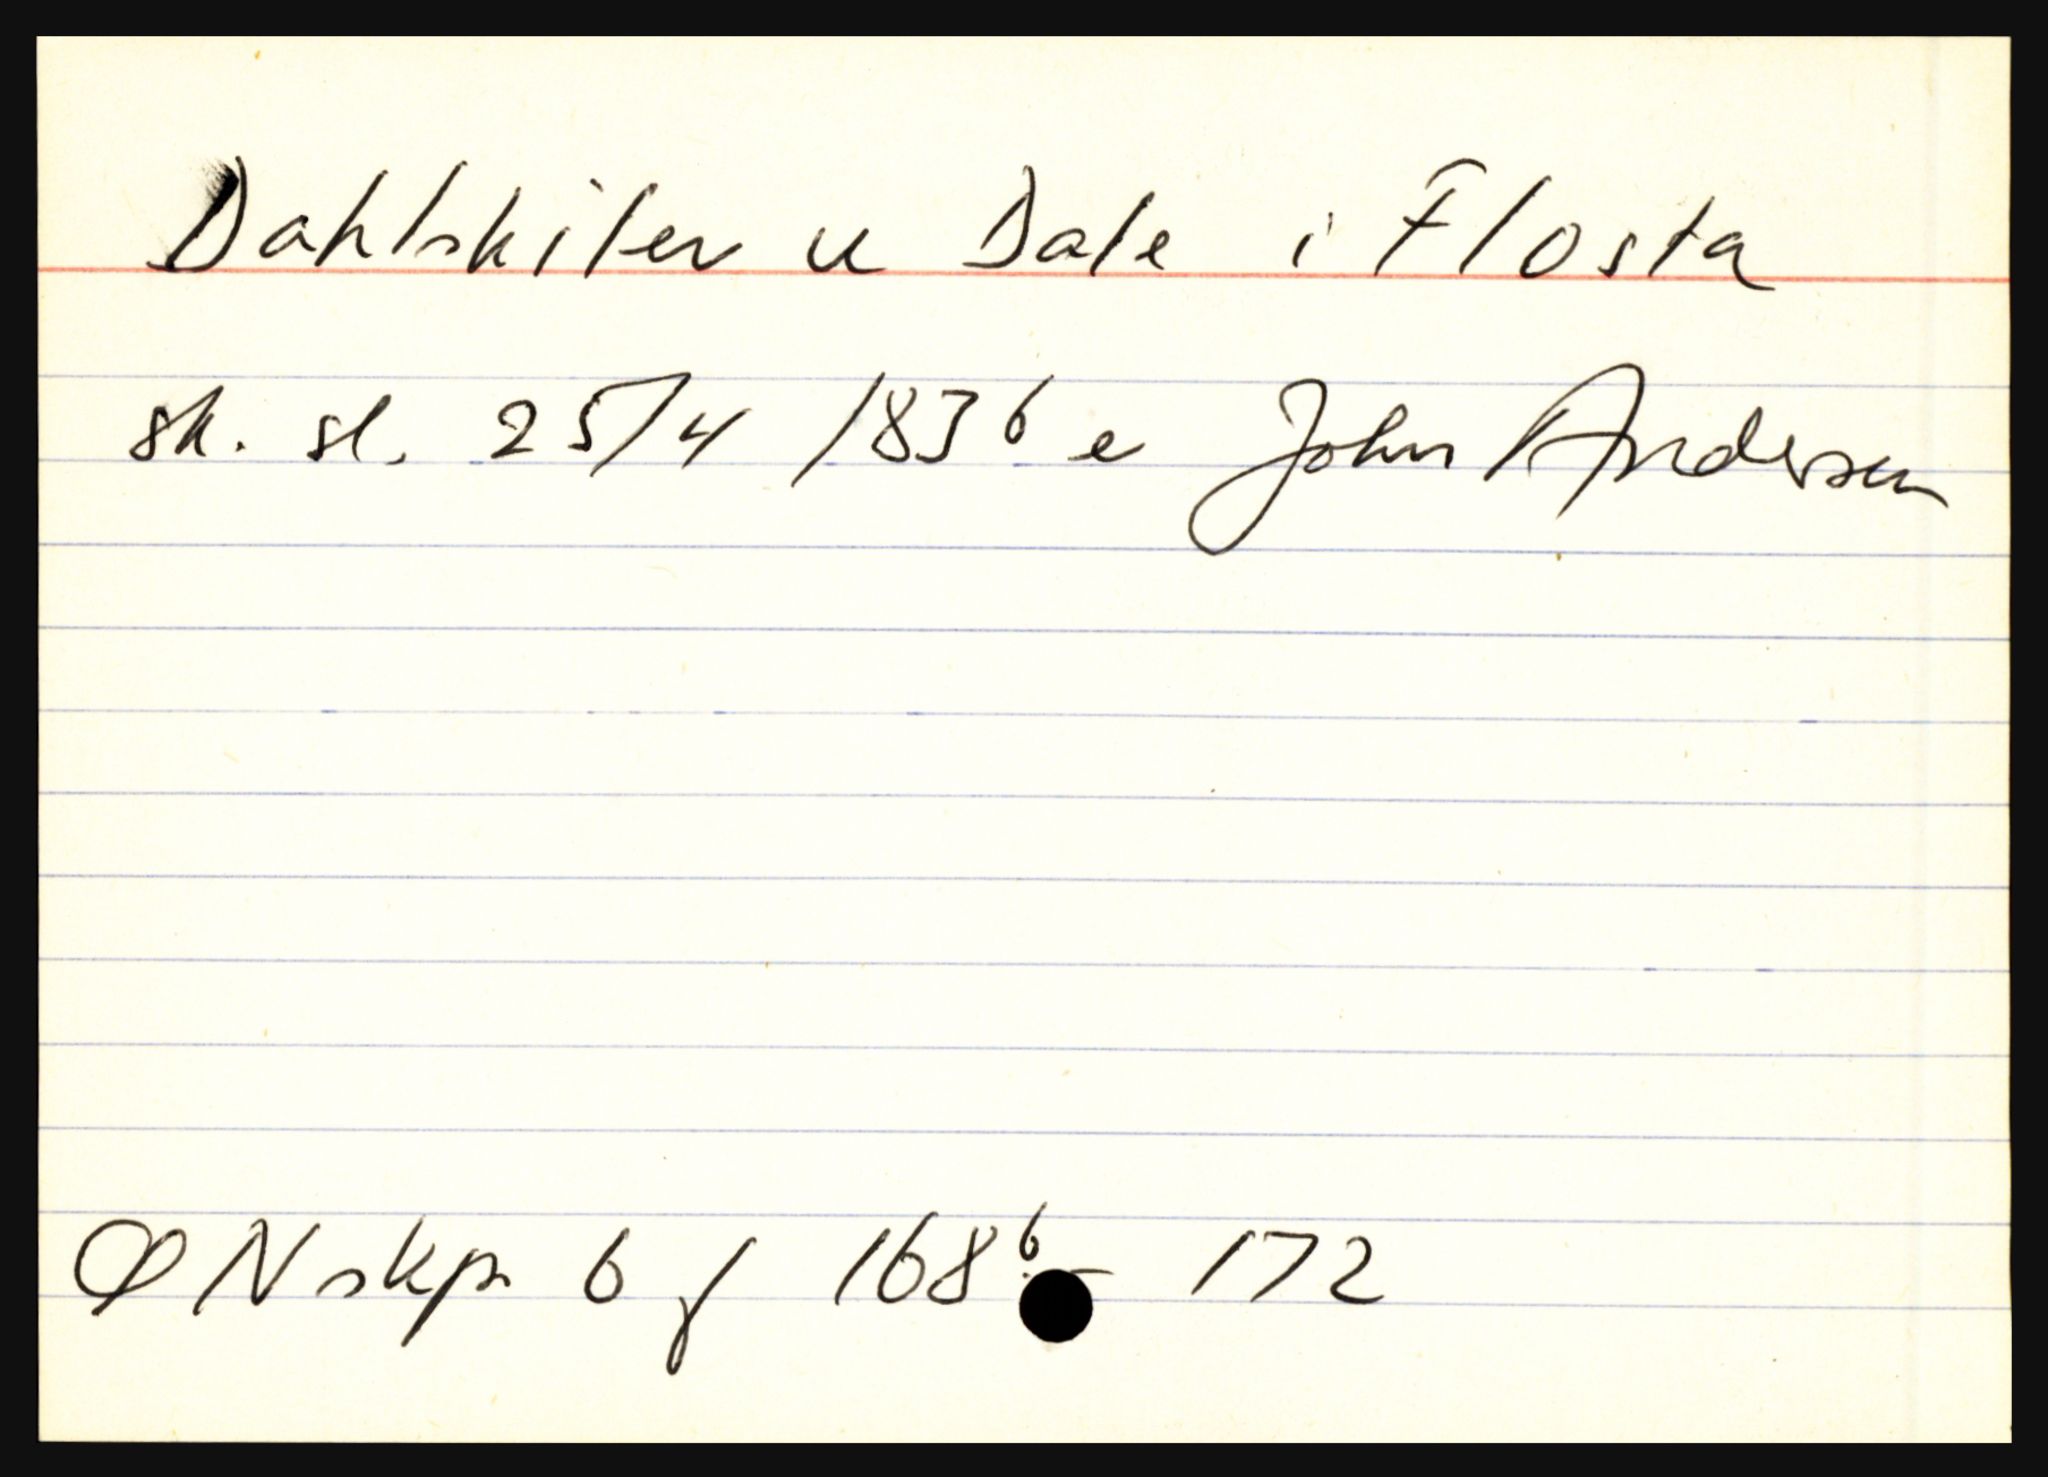 Dahlskilen u Dale i Flosta
sk. sl. 25/4 1836 e John Andersen
ØNskp. 6 f 168b - 172